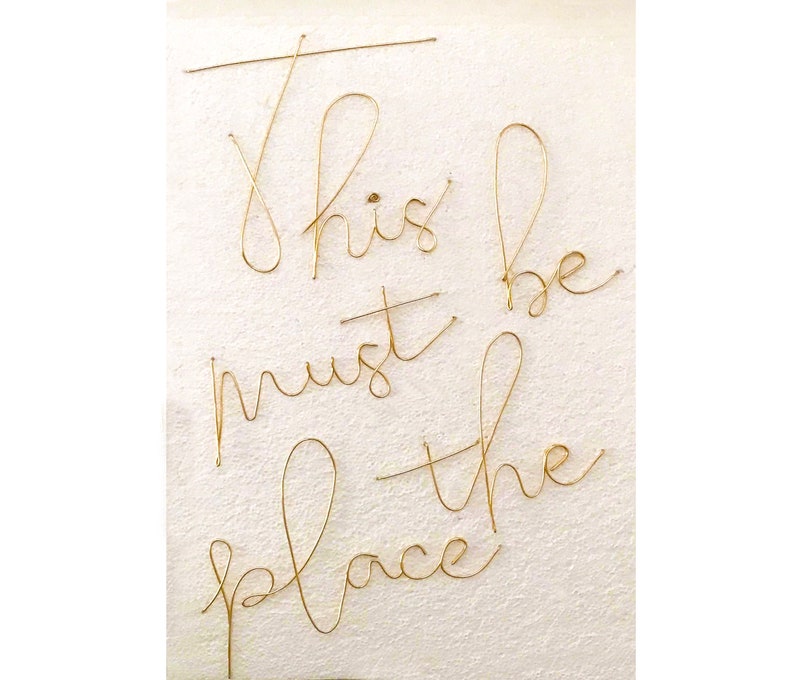 This
must be
place the